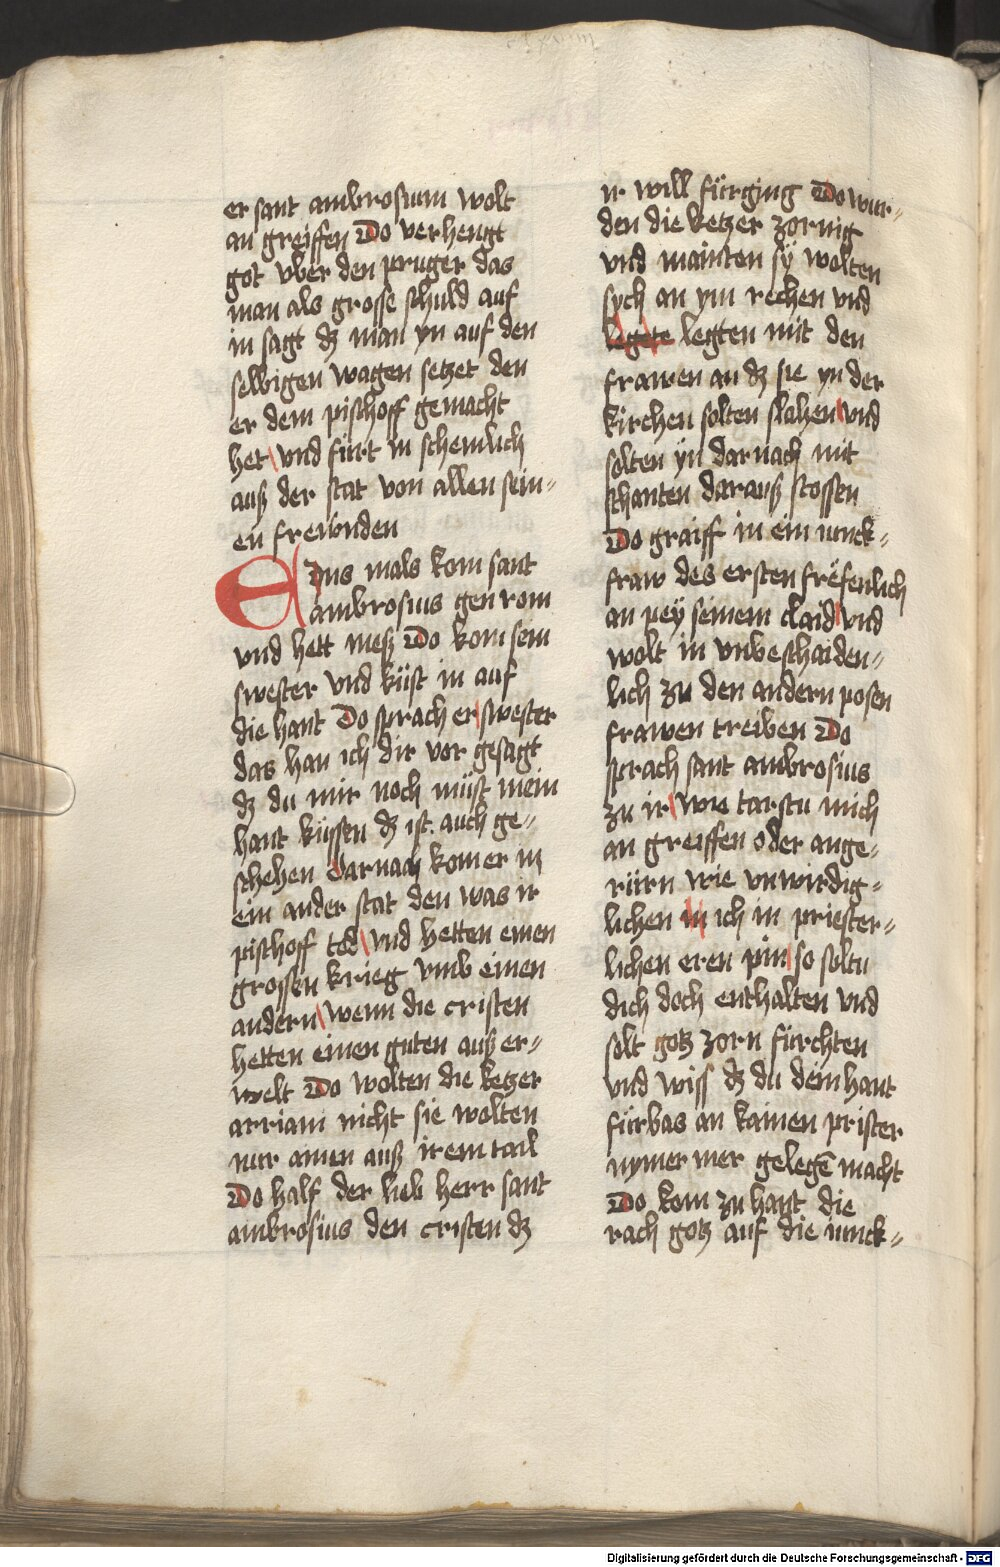 er sant ambrosium wolt
an greiffen Do verhengt
got vber den pruger das
man als grosse schuld auf
in sagt dz man yn auf den
selbigen wagen setzet den
er dem pischoff gemacht
het und fürt in schemlich
auß der stat von allen sein⸗
en frewnden
Eins mals kom sant
ambrosius gen rom
vnd hett meß Do kom sein
swester vnd küst in auf
die hant Do sprach er swester
das han ich dir vor gesagt
dz du mir noch müst mein
hant küssen dz ist auch ge⸗
schehen Darnach kom er in
ein ander stat den was ir
pischoff tod vnd hetten einen
grossen krieg vmb einen
andern wenn die cristen
hetten einen guten auß er⸗
welt Do wolten die ketzer
arriani nicht sie wolten
nur ainen auß irem tail
Do half der lieb herr sant
ambrosius den cristen dz
ir will fürging Do wur⸗
den die ketzer zornig
vnd mainten sy wolten
sych an ym rechen vnd
legete legten mit den
frawen an dz sie yn der
kirchen solten slahen vnd
solten yn darnach mit
schanten darauß stossen
Do graiff in ein iunck⸗
fraw des ersten frefenlich
an pey seinem claid vnd
wolt in vnbeschaiden⸗
lich zu den andern posen
frawen treiben Do
sprach sant ambrosius
zu ir wie tarstu mich
an greiffen oder ange⸗
rürn wie vnwirdig⸗
lichen in ich in priester⸗
lichen eren pin so soltu
dich doch enthalten vnd
solt gotz zorn fürchten
vnd wiss dz du dein hant
fürbas an kainen prister
nymer mer gelegen macht
Do kom zu hant die
rach gotz auf die iunck⸗
Digitalisierung gefördert durch die Deutsche Forschungsgemeinschaft - DFG